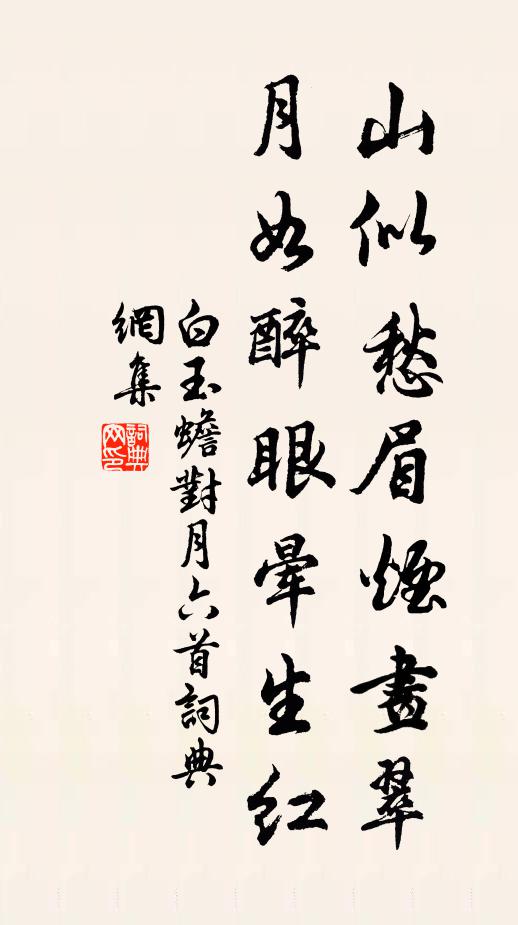 山似愁眉煙畫翠
月如醉眼暈生紅
白玉蟾對月六首詞典
網集
詞典
网印